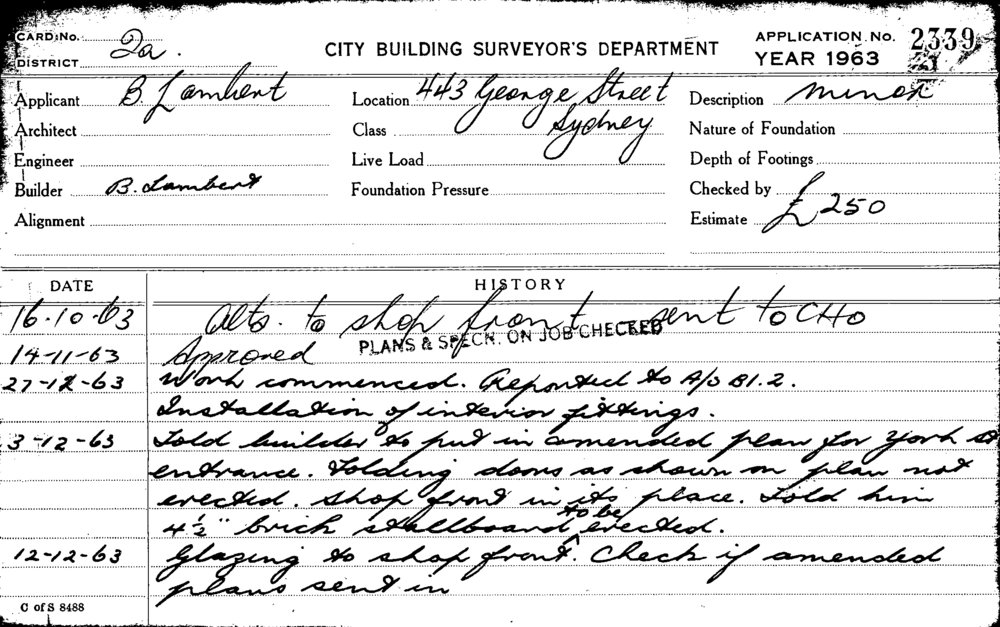 CARD No. 2a.
DISTRICT
CITY BUILDING SURVEYOR'S DEPARTMENT
APPLICATION No. 2339
YEAR 1963
Applicant B. Lambert
Location 443 George Street
Sydney
Description minor
Architect
Class
Nature of Foundation
Engineer
Live Load
Depth of Footings
Builder B. Lambert
Foundation Pressure
Checked by
Alignment
Estimate £250
DATE HISTORY
16-10-63 Alts. to shop front sent to CHO
PLANS & SPECN. ON JOB CHECKED
14-11-63 Approved
27-12-63 Work commenced. Reported to A/S B1.2.
Installation of interior fittings.
3-12-63 Told builder to put in amended plan for York St
entrance. Folding doors as shown on plan not
erected. Shop front in its place. Told him
4½" brick stallboard to be erected.
12-12-63 Glazing to shop front. Check if amended
plans sent in
C of S 8488